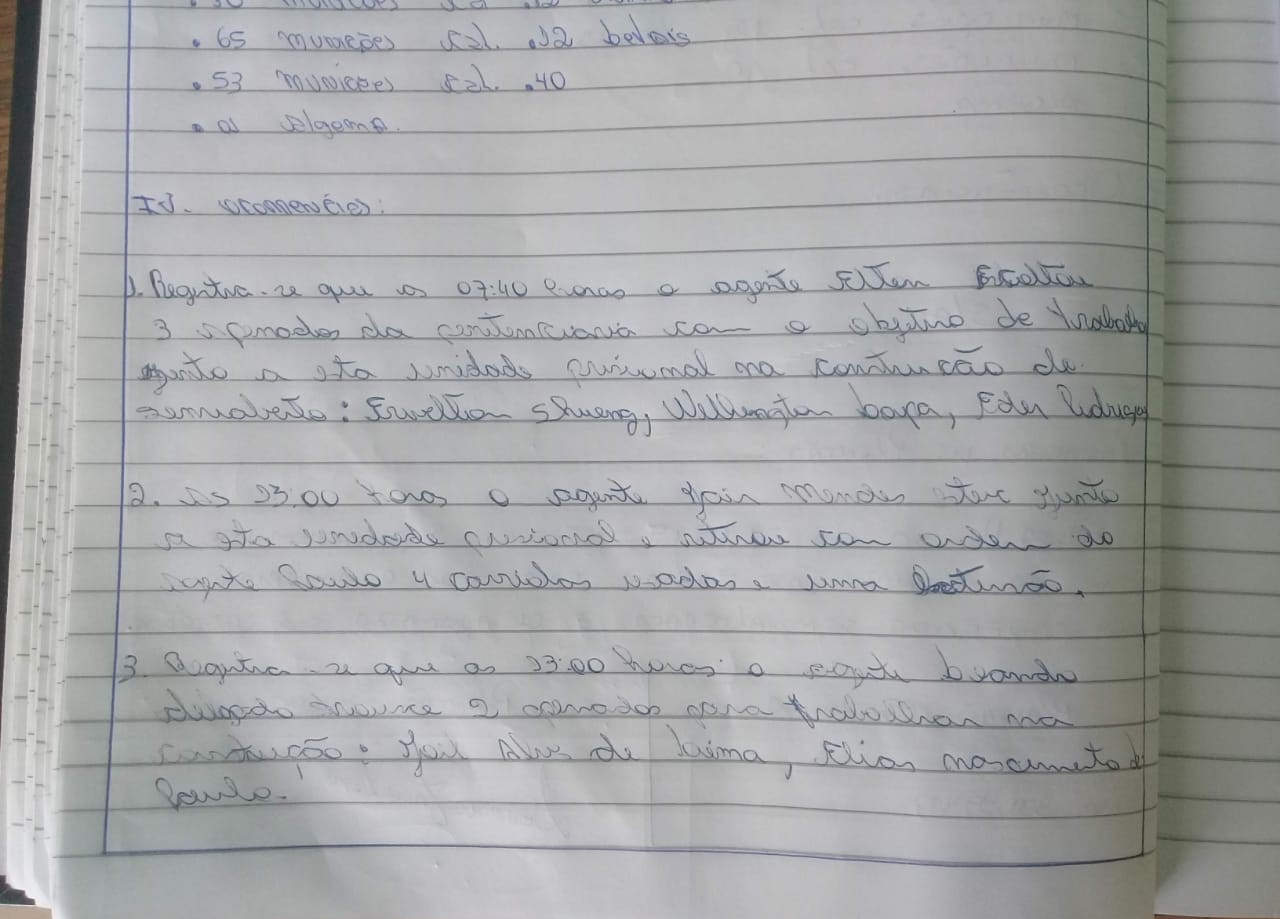 munições cal. .12
. 65 munições cal. .12 belois
. 53 munições cal. .40
. 01 algema.
IV. ocorrências:
1. Registra-se que as 07:40 horas o agente Elton Escoltou
3 apenados da penitenciaria com o objetivo de trabalho
junto a esta unidade prisional na construção do
semiaberto: Erwelton, Wellington bapa, Eder Rodrigues
2. as 13:00 horas o agente Jair Mendes steve junto
a esta unidade prisional e retirou com ordem do
agente Paulo 4 cartuchos usados e uma
3. Registra-se que as 13:00 horas o agente
trouxe 2 apenados para trabalhar na
construção: Joil Alves de Laima, Elias nascimento de
Paulo.